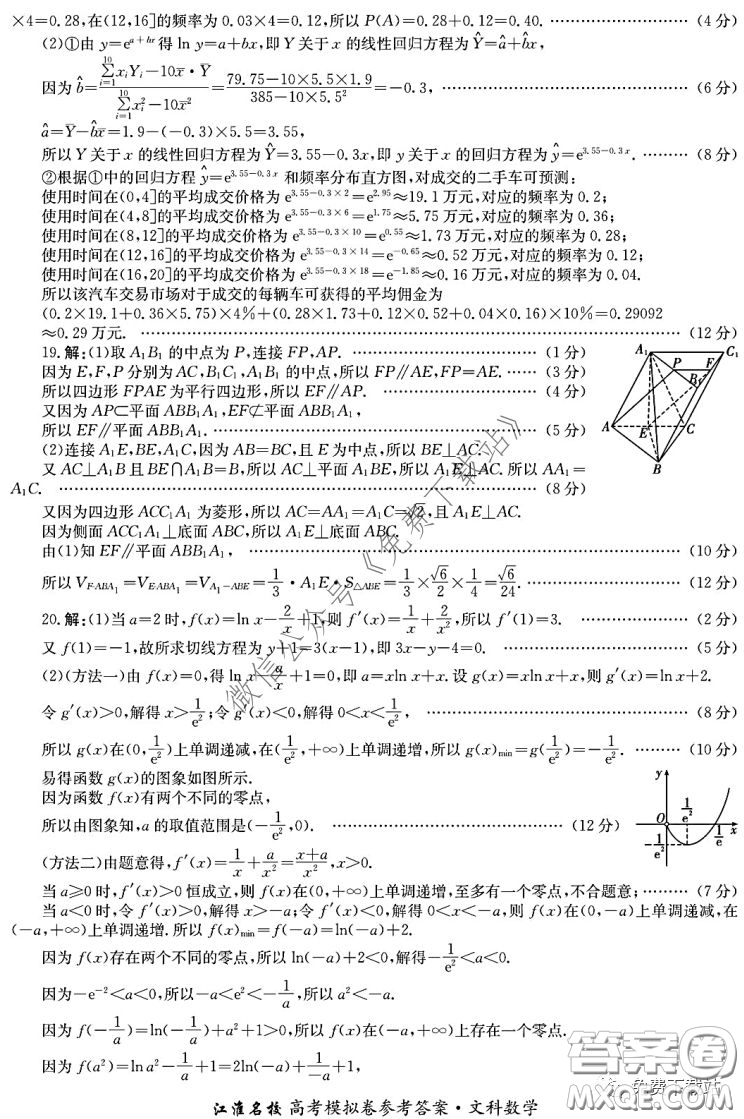 ×4=0.28,在(12,16]的频率为0.03×4=0.12,所以P(A)=0.28+0.12=0.40. ……(4分)
(2)①由y=e^{a+bx}得ln y=a+bx,即Y关于x的线性回归方程为Ŷ=â+b̂x,
因为b̂=\frac{\sum_{i=1}^{10}x_iY_i-10x̄·Ȳ}{\sum_{i=1}^{10}x_i^2-10x̄^2}=\frac{79.75-10×5.5×1.9}{385-10×5.5^2}=-0.3, ……(6分)
â=Ȳ-b̂x̄=1.9-(-0.3)×5.5=3.55,
所以Y关于x的线性回归方程为Ŷ=3.55-0.3x,即y关于x的回归方程为ŷ=e^{3.55-0.3x}. ……(8分)
②根据①中的回归方程ŷ=e^{3.55-0.3x}和频率分布直方图,对成交的二手车可预测:
使用时间在(0,4]的平均成交价格为e^{3.55-0.3×2}=e^{2.95}≈19.1万元,对应的频率为0.2;
使用时间在(4,8]的平均成交价格为e^{3.55-0.3×6}=e^{1.75}≈5.75万元,对应的频率为0.36;
使用时间在(8,12]的平均成交价格为e^{3.55-0.3×10}=e^{0.55}≈1.73万元,对应的频率为0.28;
使用时间在(12,16]的平均成交价格为e^{3.55-0.3×14}=e^{-0.65}≈0.52万元,对应的频率为0.12;
使用时间在(16,20]的平均成交价格为e^{3.55-0.3×18}=e^{-1.85}≈0.16万元,对应的频率为0.04.
所以该汽车交易市场对于成交的每辆车可获得的平均佣金为
(0.2×19.1+0.36×5.75)×4%+(0.28×1.73+0.12×0.52+0.04×0.16)×10%=0.29092
≈0.29万元. ……(12分)
19.解:(1)取A₁B₁的中点为P,连接FP,AP. ……(1分)
因为E,F,P分别为AC,B₁C₁,A₁B₁的中点,所以FP∥AE,FP=AE. ……(3分)
所以四边形FPAE为平行四边形,所以EF∥AP. ……(4分)
又因为AP⊂平面ABB₁A₁,EF⊄平面ABB₁A₁,
所以EF∥平面ABB₁A₁. ……(5分)
(2)连接A₁E,BE,A₁C,因为AB=BC,且E为中点,所以BE⊥AC.
又AC⊥A₁B且BE∩A₁B=B,所以AC⊥平面A₁BE,所以A₁E⊥AC.所以AA₁=
A₁C. ……(8分)
又因为四边形ACC₁A₁为菱形,所以AC=AA₁=A₁C=√2,且A₁E⊥AC.
因为侧面ACC₁A₁⊥底面ABC,所以A₁E⊥底面ABC.
由(1)知EF∥平面ABB₁A₁, ……(10分)
所以V_{F-ABA₁}=V_{E-ABA₁}=V_{A₁-ABE}=\frac{1}{3}·A₁E·S_{△ABE}=\frac{1}{3}×\frac{√6}{2}×\frac{1}{4}=\frac{√6}{24}. ……(12分)
A₁ C₁ P F B₁ A E C B
20.解:(1)当a=2时,f(x)=ln x-\frac{2}{x}+1,则f′(x)=\frac{1}{x}+\frac{2}{x^2},所以f′(1)=3. ……(2分)
又f(1)=-1,故所求切线方程为y+1=3(x-1),即3x-y-4=0. ……(5分)
(2)(方法一)由f(x)=0,得ln x-\frac{a}{x}+1=0,即a=xln x+x.设g(x)=xln x+x,则g′(x)=ln x+2.
令g′(x)>0,解得x>\frac{1}{e^2};令g′(x)<0,解得0<x<\frac{1}{e^2}, ……(8分)
所以g(x)在(0,\frac{1}{e^2})上单调递减,在(\frac{1}{e^2},+∞)上单调递增,所以g(x)_{min}=g(\frac{1}{e^2})=-\frac{1}{e^2}. ……(10分)
易得函数g(x)的图象如图所示.
因为函数f(x)有两个不同的零点,
所以由图象知,a的取值范围是(-\frac{1}{e^2},0). ……(12分)
y O \frac{1}{e^2} \frac{1}{e} x -\frac{1}{e^2}
(方法二)由题意得,f′(x)=\frac{1}{x}+\frac{a}{x^2}=\frac{x+a}{x^2},x>0.
当a≥0时,f′(x)>0恒成立,则f(x)在(0,+∞)上单调递增,至多有一个零点,不合题意; ……(7分)
当a<0时,令f′(x)>0,解得x>-a;令f′(x)<0,解得0<x<-a,则f(x)在(0,-a)上单调递减,在
(-a,+∞)上单调递增.所以f(x)_{min}=f(-a)=ln(-a)+2.
因为f(x)存在两个不同的零点,所以ln(-a)+2<0,解得-\frac{1}{e^2}<a<0.
因为-e^{-2}<a<0,所以-a<e^2<-\frac{1}{a},所以a^2<-a.
因为f(-\frac{1}{a})=ln(-\frac{1}{a})+a^2+1>0,所以f(x)在(-a,+∞)上存在一个零点.
因为f(a^2)=ln a^2-\frac{1}{a}+1=2ln(-a)+\frac{1}{-a}+1,
江淮名校 高考模拟卷参考答案·文科数学
微信公众号《免费下载站》
免费下载站
答案圈
MXQE.COM